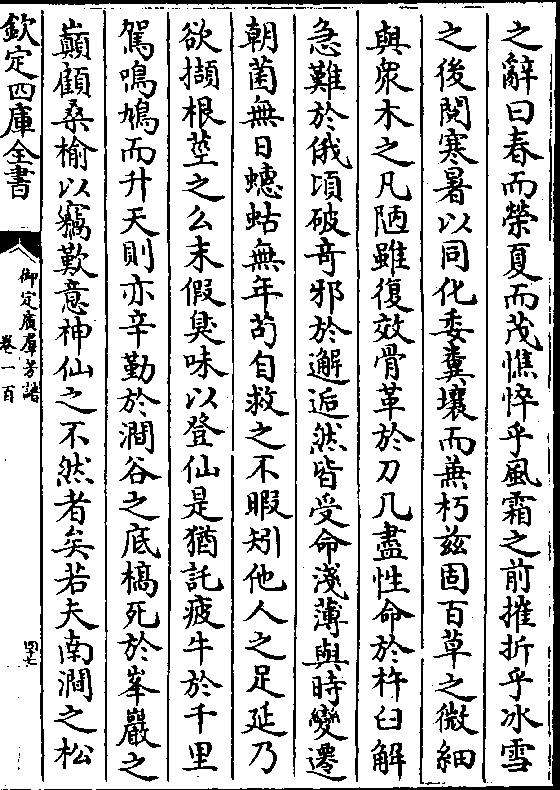 之辭曰春而榮夏而茂憔悴乎風霜之前摧折乎冰雪
之後閱寒暑以同化委糞壤而兼朽兹固百草之微細
與衆木之凡陋雖復效骨革於刀几盡性命於杵臼解
急難於俄頃破竒邪於邂逅然皆受命淺薄與時變遷
朝菌無日蟪蛄無年茍自救之不暇矧他人之足延乃
欲擷根莖之么末假臭味以登仙是猶託疲牛於千里
駕鳴鳩而升天則亦辛勤於澗谷之底槁死於峯巖之
巔顧桑榆以竊歎意神仙之不然者矣若夫南澗之松
欽定四庫全書
御定廣羣芳譜
卷一百
四七